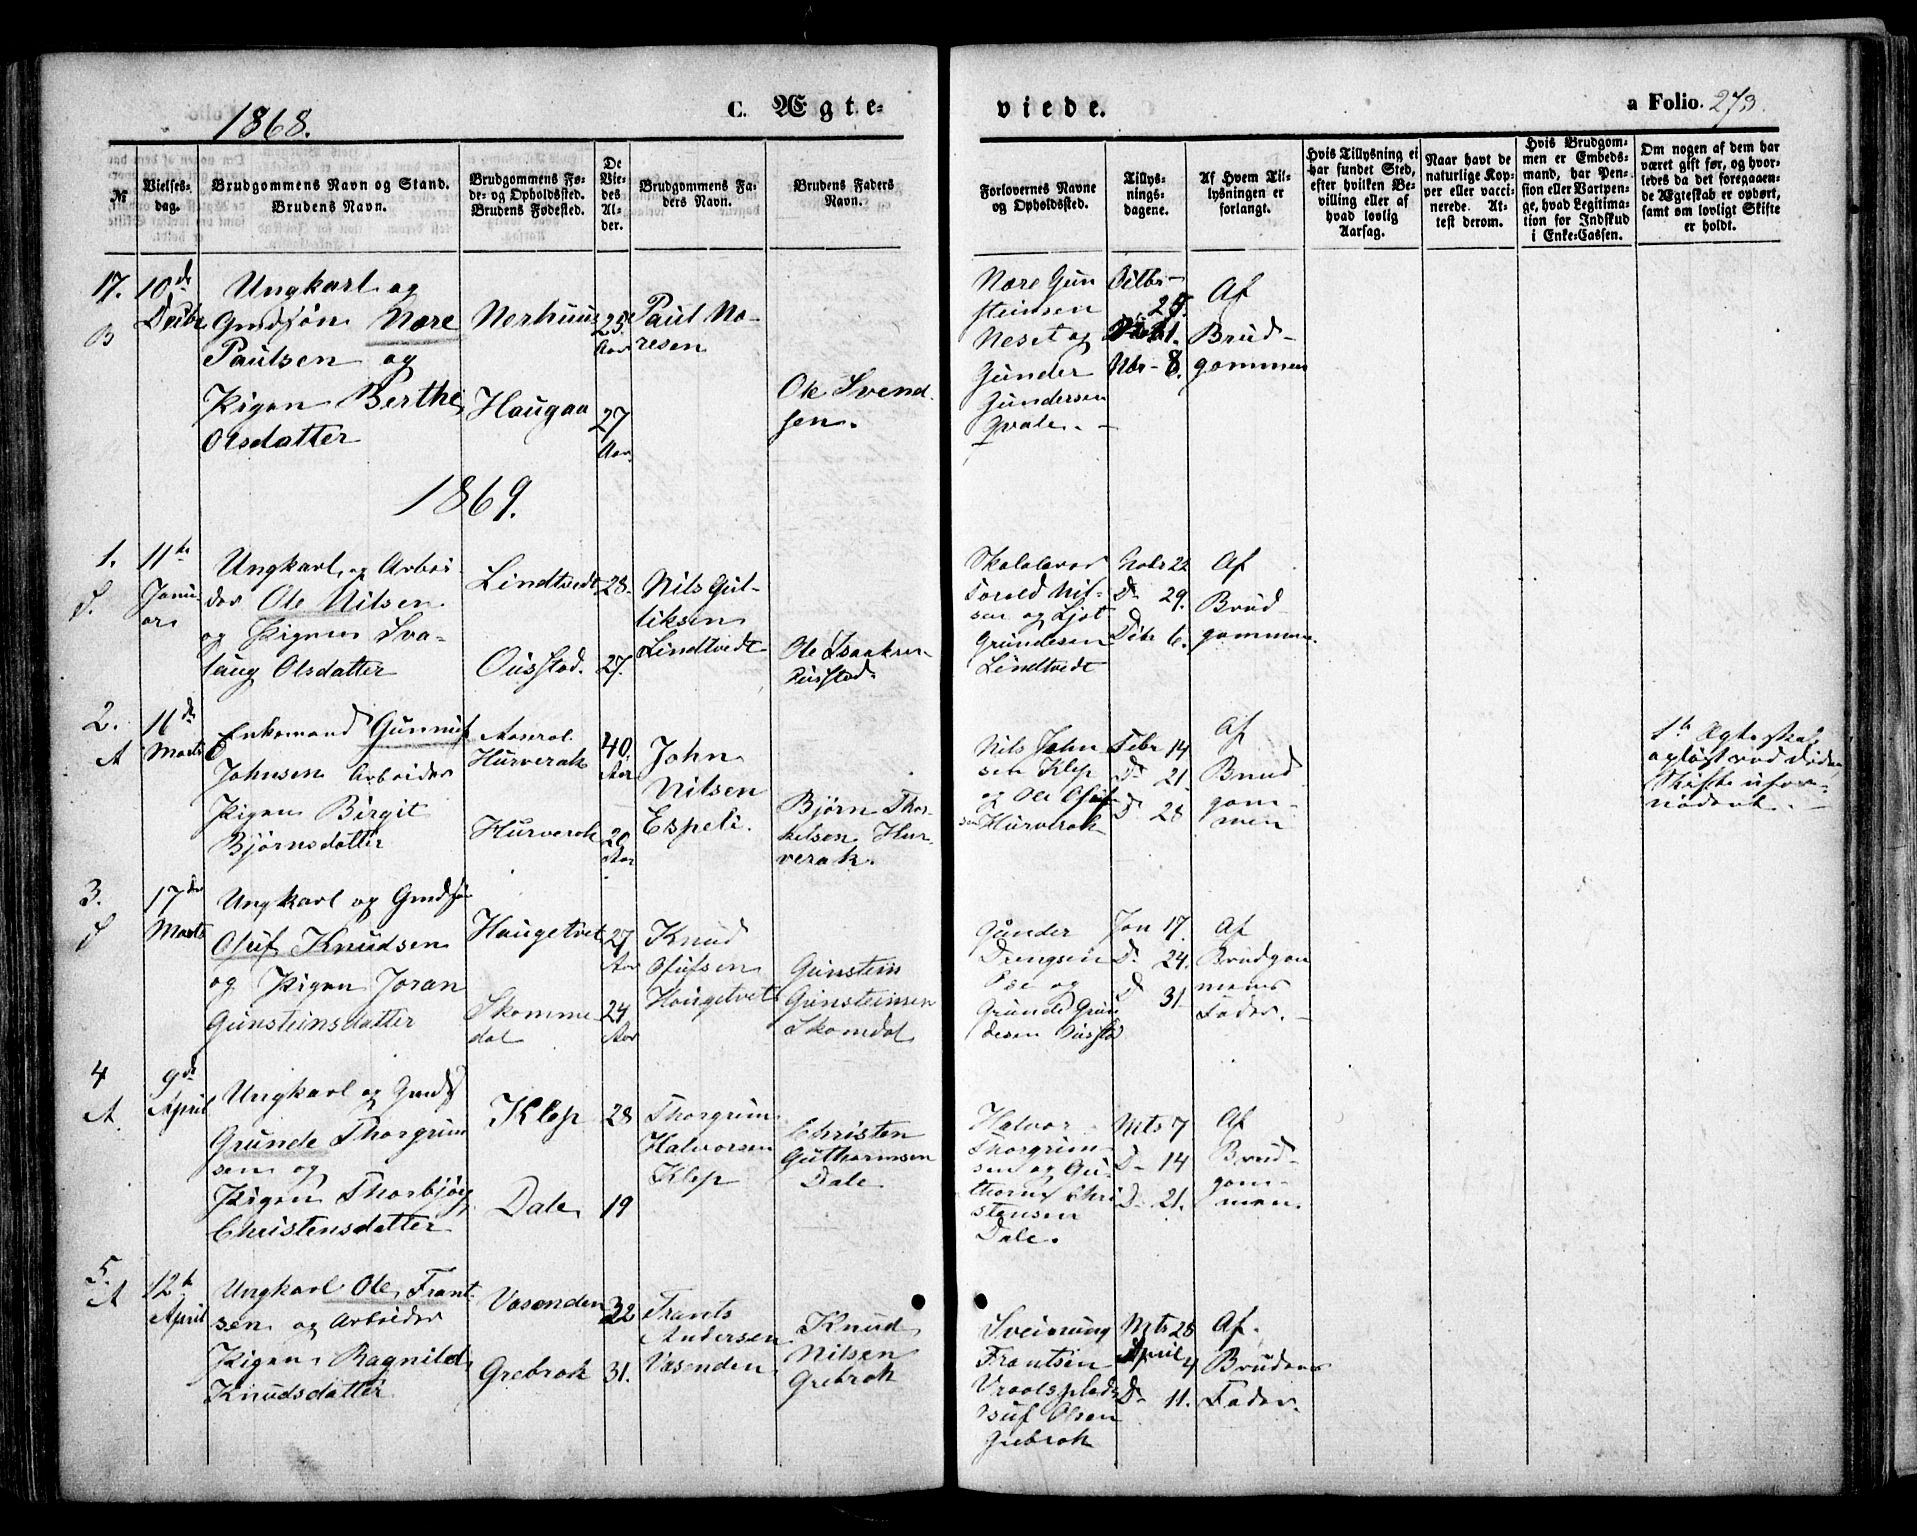 1868.
C. Ægte-
viede.
a Folio. 273.
№
Vielses-
dag.
Brudgommens Navn og Stand.
Brudens Navn.
Brudgommens Fø-
de- og Opholdssted.
Brudens Fødested.
De
Vie-
des
Al-
der.
Brudgommens Fa-
ders Navn.
Brudens Faders
Navn.
Forlovernes Navne
og Opholdssted.
Tillys-
nings-
dagene.
Af Hvem Til-
lysningen er
forlangt.
Hvis Tillysning ei
har fundet Sted,
efter hvilken Be-
villing eller af
hvad lovlig
Aarsag.
Naar havt de
naturlige Kop-
per eller vacci-
nerede. At-
test derom.
Hvis Brudgom-
men er Embeds-
mand, har Pen-
sion eller Vartpen-
ge, hvad Legitima-
tion for Indskud
i Enke-Cassen.
Om nogen af dem har
været gift før, og hvor-
ledes da det foregaaen-
de Ægteskab er ophørt,
samt om lovligt Skifte
er holdt.
17.
B
10de
Dcbr
Ungkarl og
Gmdsøn Nære
Paulsen og
Pigen Berthe
Olsdatter
Nerhuus
Haugaa
25
Aar
27
Aar.
Paul No-
resen
Ole Svend-
sen.
Nære Gun
steinsen
Neset og
Gunder
Gundersen
Qvale.
Octbr
25.
1.
Nbr- 8.
Af
Brud-
gommen
1869.
1.
11te
Janu-
ar
Ungkarl og Arbei-
der Ole Nilsen
og Pigen Sva-
laug Olsdatter
Lindtvedt
Ousstad.
28.
27.
Nils Gul-
liksen
Lindtvedt
Ole Isaaksen
Ousstad.
Skolelærer
Torold Nil-
sen og Ljot
Grundesen
Lindtvedt
Nobr 22
D- 29.
Dcbr 6.
Af
Brud-
gommen.
2.
A
11de
Marts
Enkemand Gunnuf
Johnsen Arbeider
Pigen Birgit
Bjørnsdatter
Hurverak
Hurverak
40
Aar
20
Aar
John
Nilsen
Espeli.
Bjørn Thor-
kelsen Hur-
verak.
Nils John
sen Klep
og Ole Oluf-
sen Hurverak
Febr 14
D- 21
D- 28
Af
Brud
gom-
men
1te Ægteskab
opløst ved Døden,
Skifte ufor-
nødent.
3.
17de
Marts
Ungkarl og Gmdsøn
Oluf Knudsen
og Pigen Joran
Gunsteinsdatter
Haugetvet
Skomme-
dal
27
Aar
24
Aar
Knud
Olufsen
Haugetvet
Gunstein
Gunsteinsen
Skomdal
Gunder
Drengsen
og
Grunde Grun
desen Ousstad
Jan 17.
D- 24.
D- 31.
Af
Brudgom
mens
Fader.
4
A.
9de
April
Ungkarl og Gmds
Grunde Thorgrim
sen og
Pigen Thorbjørg
Christensdatter
Klep
Dale
28
19
Thorgrim
Halvorsen
Klep
Christen
Guthormsen
Dale
Halvor
Thorgrim-
sen og Gu-
thorm Chri
stensen
Dale.
Mts 7
D- 14
D- 21.
Af
Brud-
gom-
men.
5.
A
12te
April
Ungkarl Ole Frant-
sen og Arbeider
Pigen Ragnild
Knudsdatter
Vasenden
Grebrok
32
31.
Frants
Andersen
Vasenden
Knud
Nilsen
Grebrok
Sveinung
Frantsen
Vraalsplads
Olsen
Grebrok
Mts 28
April 4
D- 11.
Af.
Brudens
Fader.